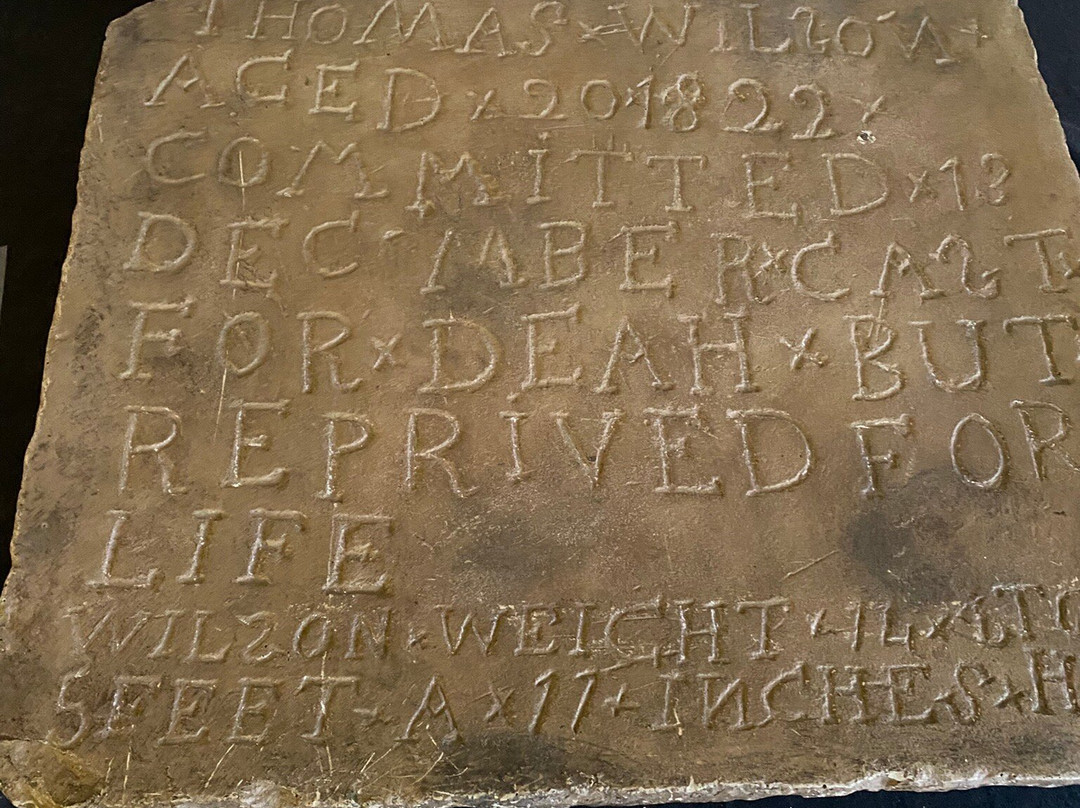 THOMAS × WILSON ×
AGED × 20 1822 ×
COMMITTED × 18
DECMBER × CAST
FOR × DEAH × BUT
REPRIVED FOR
LIFE
WILSON × WEIGHT × 14 × STO
5 FEET × A × 11 × INCHES × H